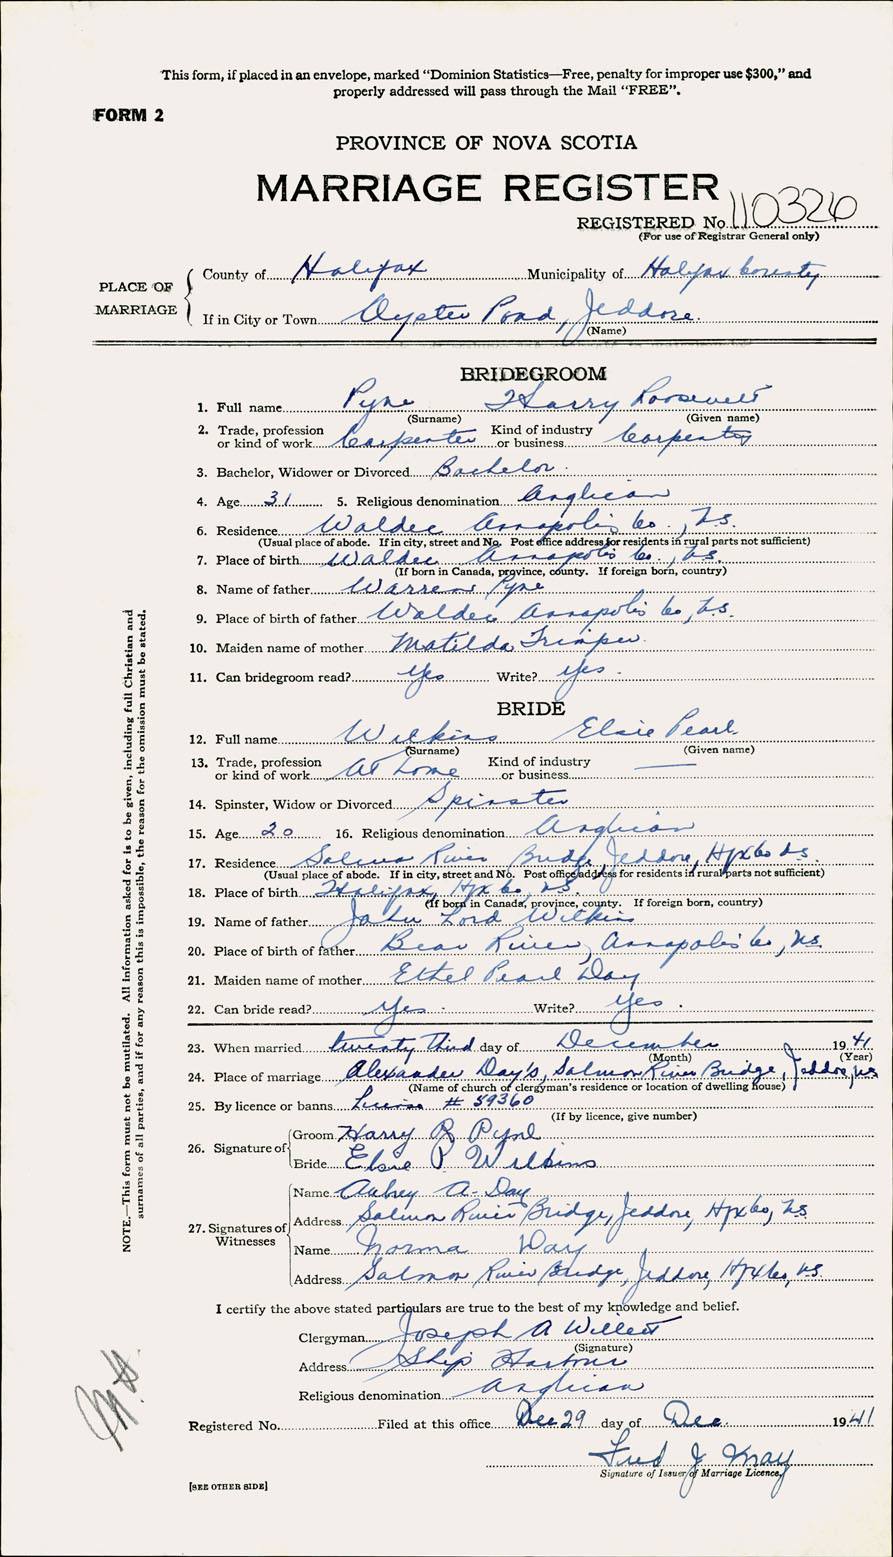 This form, if placed in an envelope, marked "Dominion Statistics—Free, penalty for improper use $300," and
properly addressed will pass through the Mail "FREE".
FORM 2
PROVINCE OF NOVA SCOTIA
MARRIAGE REGISTER
REGISTERED No. 110326
(For use of Registrar General only)
PLACE OF MARRIAGE
County of Halifax Municipality of Halifax County
If in City or Town Oyster Pond, Jeddore.
(Name)
BRIDEGROOM
1. Full name Pyne Harry Roosevelt
(Surname) (Given name)
2. Trade, profession or kind of work Carpenter Kind of industry or business Carpentry
3. Bachelor, Widower or Divorced Bachelor.
4. Age 31 5. Religious denomination Anglican
6. Residence Waldec Annapolis Co., N.S.
(Usual place of abode. If in city, street and No. Post office address for residents in rural parts not sufficient)
7. Place of birth Waldec Annapolis Co., N.S.
(If born in Canada, province, county. If foreign born, country)
8. Name of father Warren Pyne
9. Place of birth of father Waldec Annapolis Co, N.S.
10. Maiden name of mother Matilda Trimper.
11. Can bridegroom read? Yes Write? Yes.
BRIDE
12. Full name Wilkins Elsie Pearl.
(Surname) (Given name)
13. Trade, profession or kind of work At Home Kind of industry or business —
14. Spinster, Widow or Divorced Spinster
15. Age 20 16. Religious denomination Anglican
17. Residence Salmon River Bridge, Jeddore, Hfx Co N.S.
(Usual place of abode. If in city, street and No. Post office address for residents in rural parts not sufficient)
18. Place of birth Halifax, Hfx Co, N.S.
(If born in Canada, province, county. If foreign born, country)
19. Name of father John Lord Wilkins
20. Place of birth of father Bear River, Annapolis Co, N.S.
21. Maiden name of mother Ethel Pearl Day
22. Can bride read? Yes. Write? Yes.
23. When married twenty third day of December 1941
(Month) (Year)
24. Place of marriage Alexander Day's, Salmon River Bridge, Jeddore, N.S.
(Name of church of clergyman's residence or location of dwelling house)
25. By licence or banns License # 59360
(If by licence, give number)
26. Signature of Groom Harry R Pyne
Bride Elsie P Wilkins
27. Signatures of Witnesses
Name Aubrey A. Day
Address Salmon River Bridge, Jeddore, Hfx Co, N.S.
Name Norma Day
Address Salmon River Bridge, Jeddore, Hfx Co, N.S.
I certify the above stated particulars are true to the best of my knowledge and belief.
Clergyman Joseph A Willett
(Signature)
Address Ship Harbour
Religious denomination Anglican
Registered No. Filed at this office Dec 29 day of Dec. 1941
Fred J
Signature of Issuer of Marriage Licence.
[SEE OTHER SIDE]
NOTE.—This form must not be mutilated. All information asked for is to be given, including full Christian and
surnames of all parties, and if for any reason this is impossible, the reason for the omission must be stated.